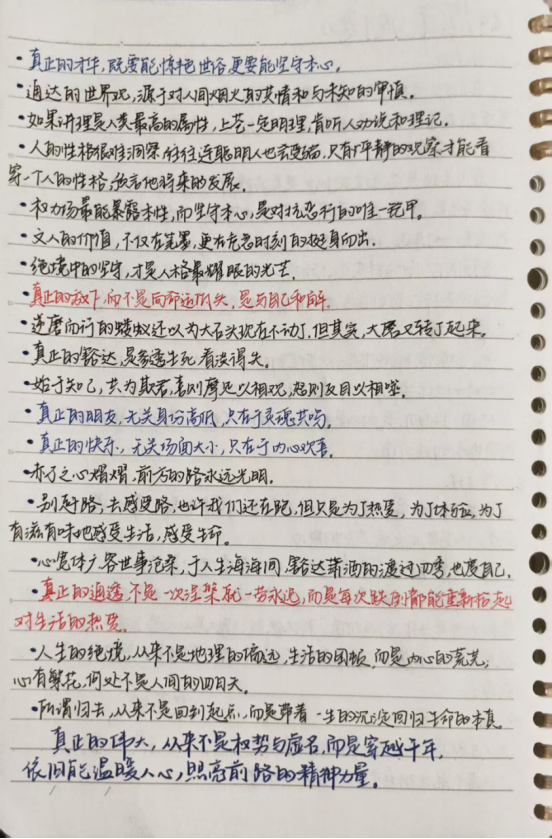 ·真正的才华,既要能惊艳世俗,更要能坚守本心。
·通达的世界观,源于对人间烟火的共情和与未知的审慎。
·如果讲理是人类最高的属性,上艺一定明理,肯听人劝说和理记。
·人的性格很难洞察,往往连聪明人也会受骗,只有平静的观察才能看
穿一个人的性格,预言他将来的发展。
·权力场最能暴露本性,而坚守本心,是对抗恶行的唯一铠甲。
·文人的价值,不仅在笔墨,更在危急时刻的挺身而出。
·绝境中的坚守,才是人格最耀眼的光芒。
·真正的放下,而不是向命运低头,是与自己和解。
·逆磨而行的蚂蚁还以为大石头现在不动了,但其实,大磨又转了起来。
·真正的豁达,是参透生死,看淡得失。
·始于知己,共为欺君,喜则摩足以相欢,怒则反目以相噬。
·真正的朋友,无关身份高低,只在于灵魂共鸣。
·真正的快乐,无关场面大小,只在于内心欢喜。
·赤子之心熠熠,前方的路永远光明。
·别赶路,去感受路,也许我们还在跑,但只是为了热爱,为了体验,为了
有滋有味地感受生活,感受生命。
·心宽体广容世事沧桑,于人生海海间,豁达潇洒的渡过四季,也渡自己。
·真正的通透,不是一次涅槃就一劳永逸,而是每次跌倒都能重新拾起
对生活的热爱。
·人生的绝境,从来不是地理的偏远,生活的困顿,而是内心的荒芜;
心有繁花,何处不是人间的四月天。
·所谓归去,从来不是回到起点,而是带着一生的沉淀回归生命的本真
真正的伟大,从来不是权势与虚名,而是穿越千年,
依旧能温暖人心,照亮前路的精神力量。